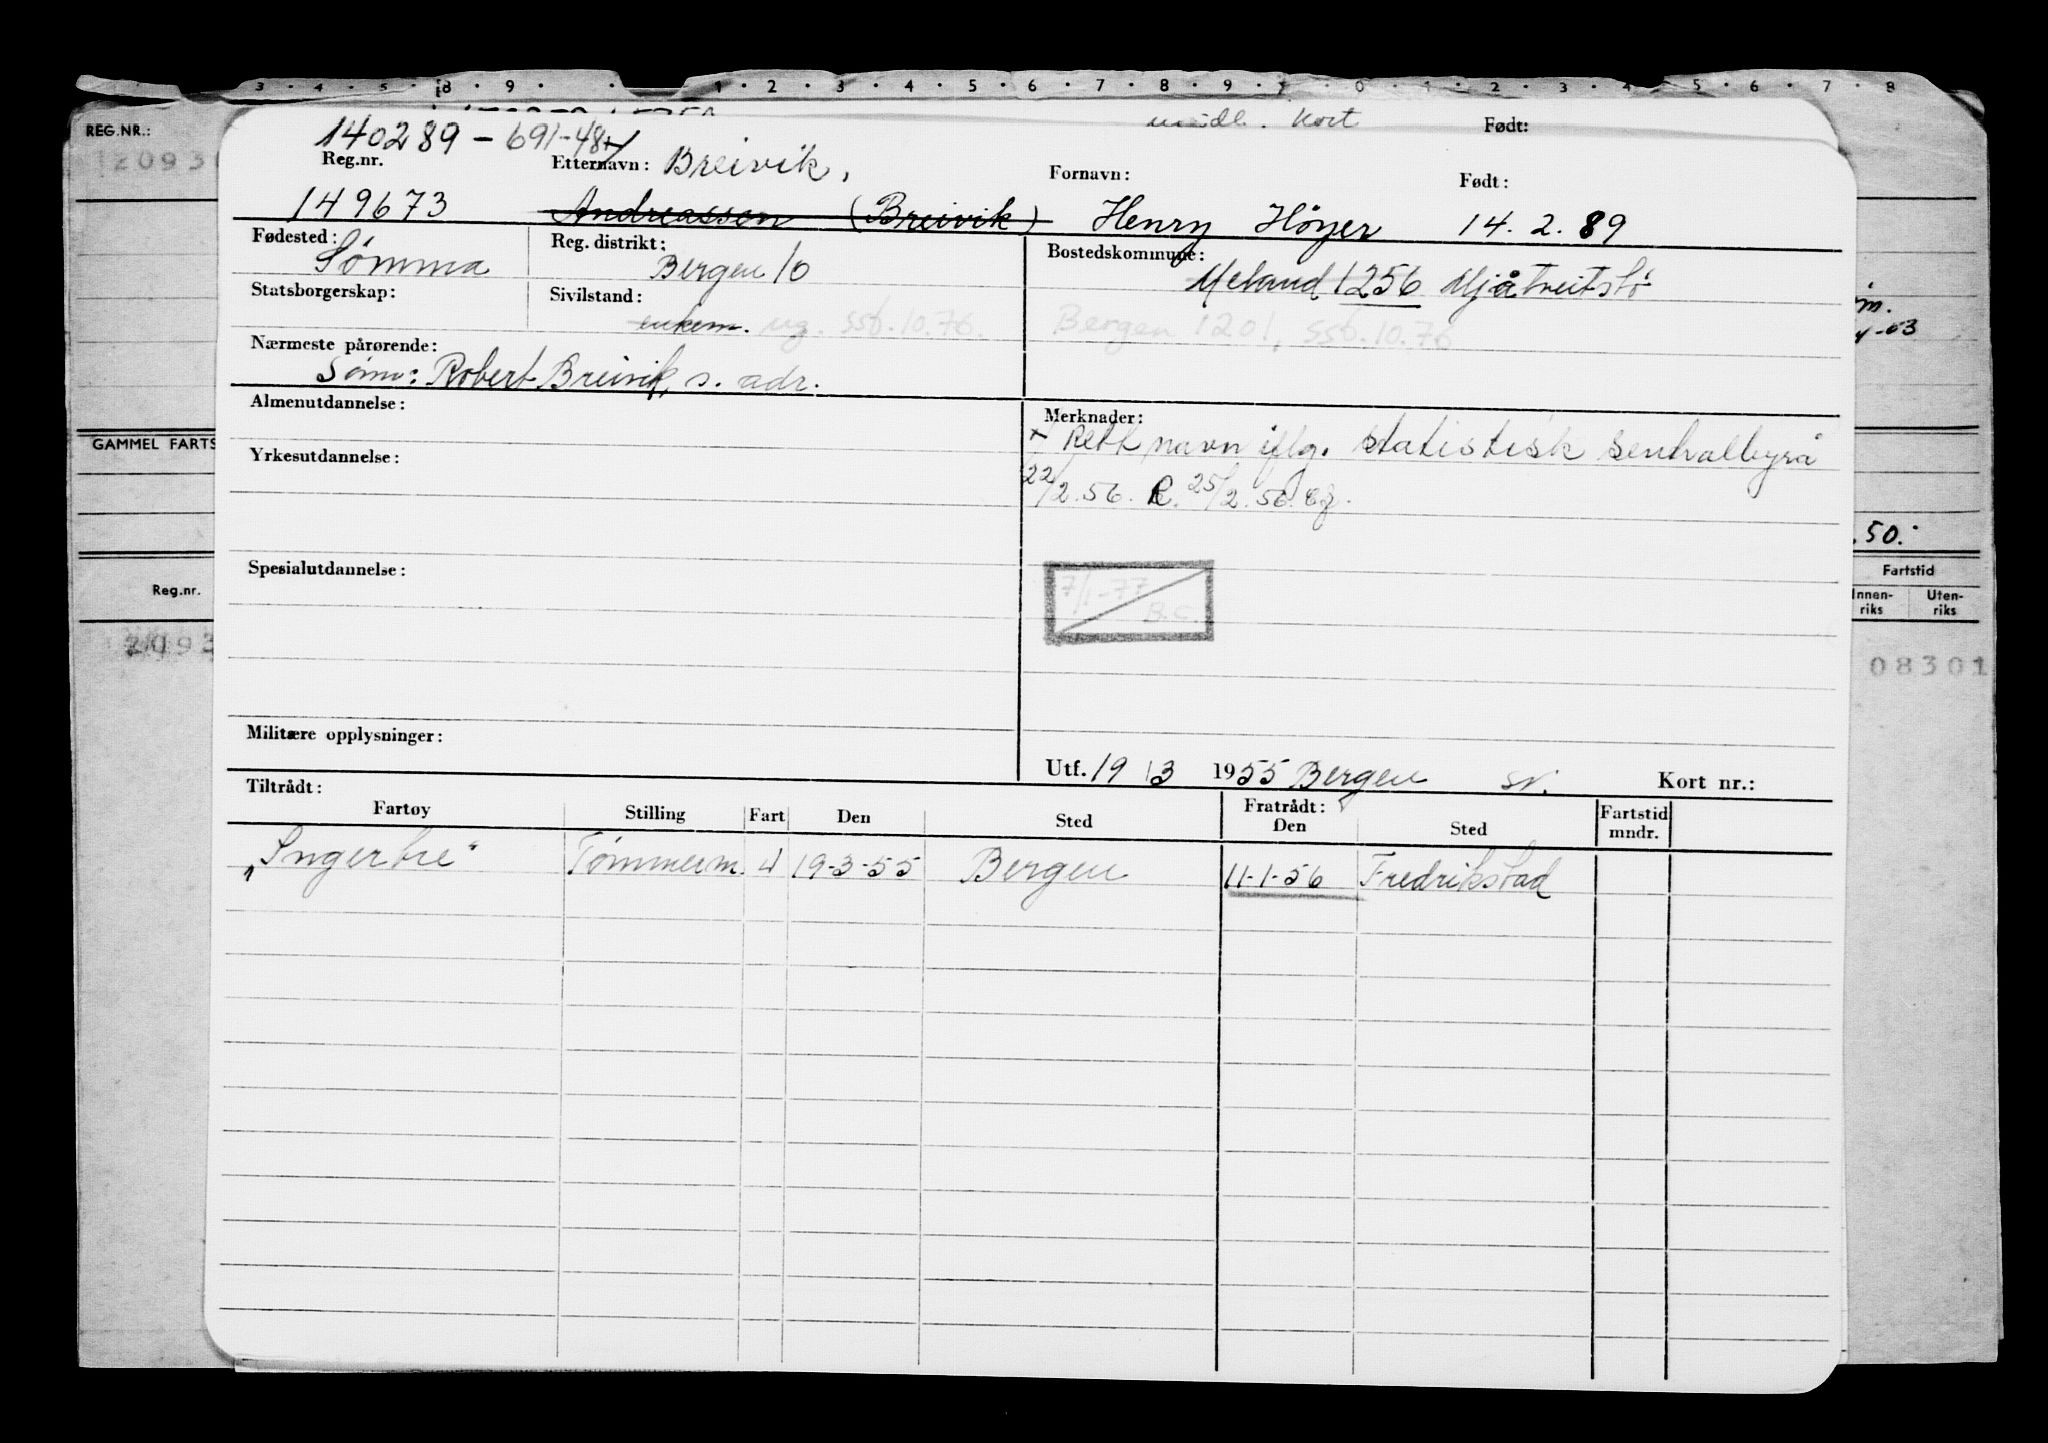 3 · 4 · 5 · 8 · 9 · 1 · 2 · 3 · 4 · 5 · 6 · 7 · 8 · 9 · 0 · 1 · 2 · 3 · 4 · 5 · 6 · 7 · 8
REG.NR.:
Kort
Født:
140289 - 691-48
Reg.nr.
Etternavn: Breivik,
Fornavn:
Født:
149673
Andreassen (Breivik)
Henry Höyer
14. 2. 89
Fødested:
Sömma
Reg. distrikt:
Bergen 10
Bostedskommune:
Meland 1256 Mjåtveitstö
Statsborgerskap:
Sivilstand:
enkem. ug. ssb. 10. 76.
Bergen 1201, ssb. 10. 76
Nærmeste pårørende:
Sönn: Robert Breivik, s. adr.
Almenutdannelse:
Merknader:
+ Rett navn iflg. statistisk sentralbyrå
22/2. 56. 25/2. 56.
Yrkesutdannelse:
GAMMEL FARTS
50.
Spesialutdannelse:
7/1-77
B.C.
Reg.nr.
Fartstid
Innen-
riks
Uten-
riks
08301
Militære opplysninger:
Utf. 19/3 1955 Bergen
Kort nr.:
Tiltrådt:
Fartøy
Stilling
Fart
Den
Sted
Fratrådt:
Den
Sted
Fartstid
mndr.
"Ingertre" Tømmerm. U 19-3-55 Bergen 11-1-56 Fredrikstad